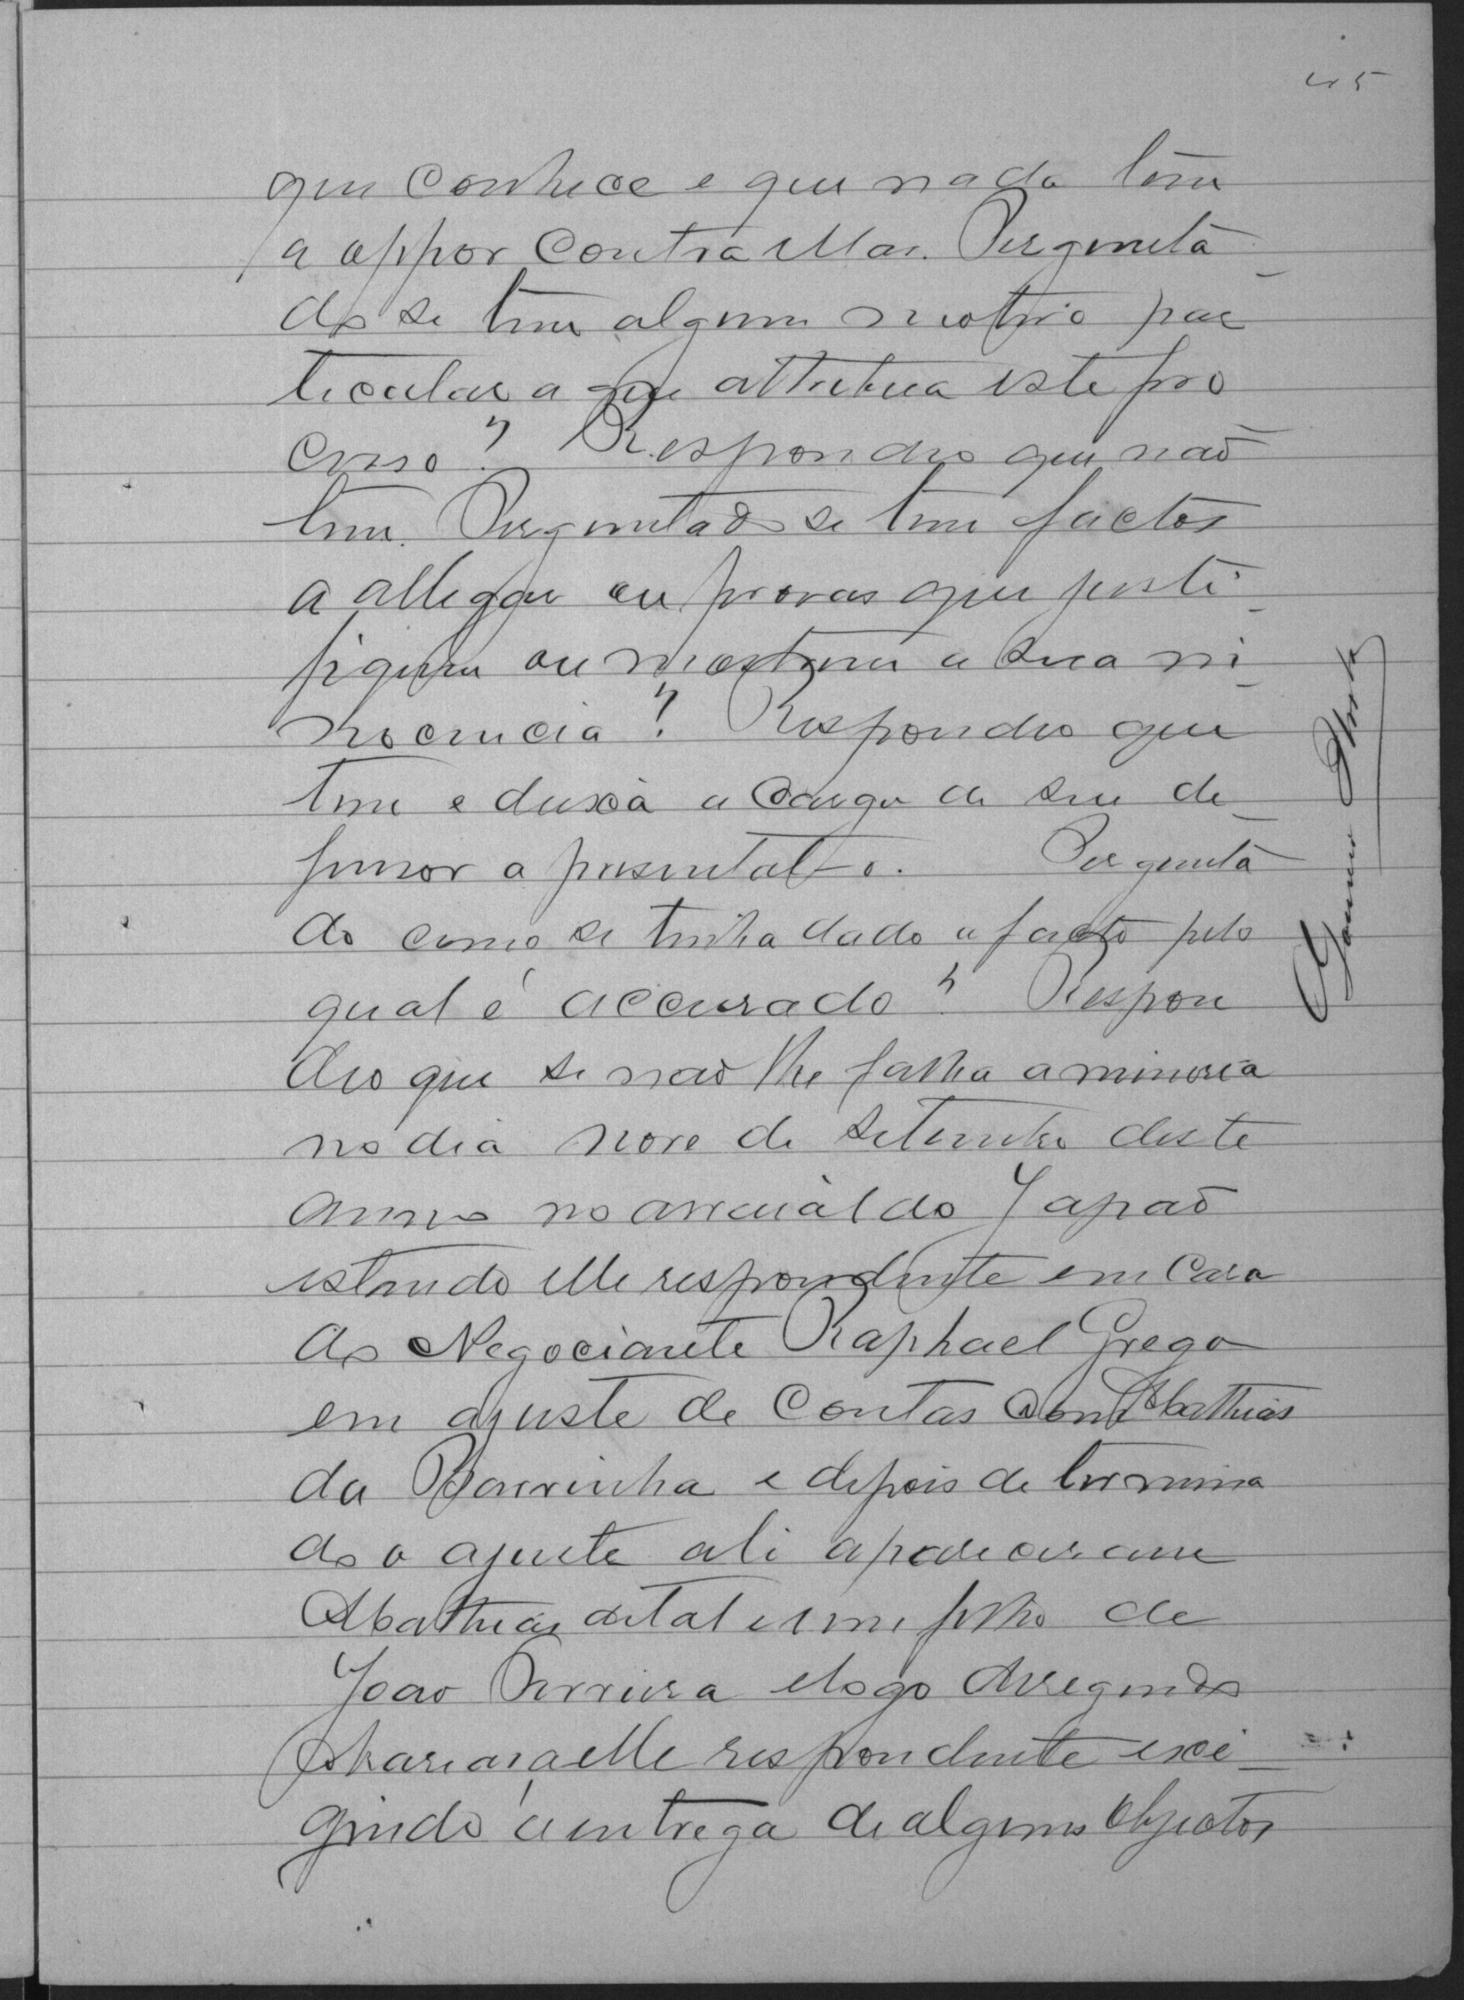 45
que conhece e que nada tem
a oppor contra ellas. Pergunta
do se tem algum motivo par
ticular a que attribua este pro
cesso? Respondeo que não
tem. Perguntado se tem factos
a allegar ou provas que justi
fiquem ou mostrem a sua in
nocencia? Respondeo que
tem e deixa a cargo de seu de
fensor apresental-o. Pergunta
do como se tinha dado o facto pelo
qual é accusado? Respon
deo que se não lhe falha a memoria
no dia nove de Setembro deste
anno no arraial do Japão
estando elle respondente em casa
do Negociante Raphael Grego
em ajuste de contas com Mathias
da Barrinha e depois de termina
do o ajuste ali apareceram
Mathias de tal e um filho de
João Ferreira e logo
a elle respondente exi
gindo a entrega de alguns objectos